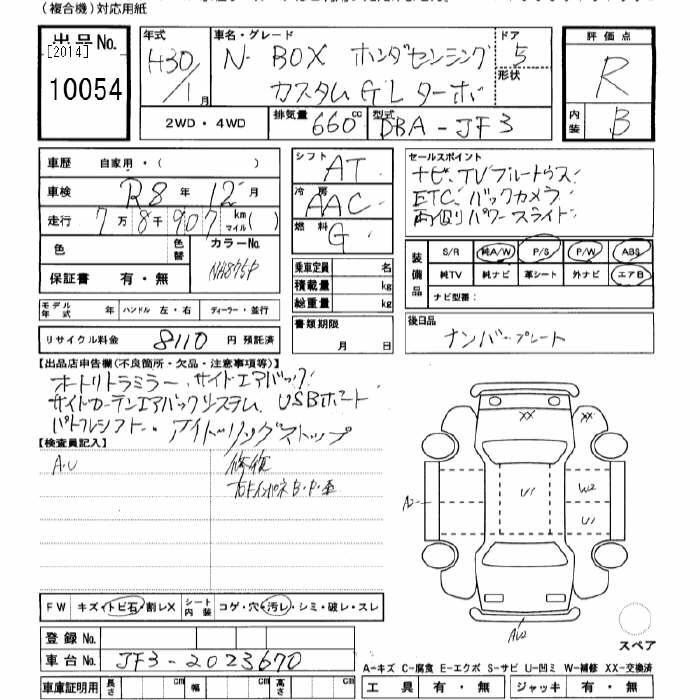 (複合機)対応用紙
出品No. [2014] 10054
年式 H30/1月
車名・グレード N-BOX ホンダセンシング カスタムG・Lターボ
ドア 5 形状
評価点 R
内装 B
2WD・4WD 排気量 660cc 型式 DBA-JF3
車歴 自家用・( )
車検 R8年 12月
走行 7万8千907km マイル( )
色 色替 カラーNo. NH875P
保証書 有・無
シフト AT
冷房 AAC
燃料 G
乗車定員 名
積載量 kg
総重量 kg
セールスポイント
ナビ、TV、ブルートゥス、
ETC、バックカメラ
両側パワースライド
装備品 S/R 純A/W P/S P/W ABS
純TV 純ナビ 革シート 外ナビ エアB
ナビ型番:
モデル年式 年 ハンドル 左・右 ディーラー・並行
書類期限 月 日
後日品 ナンバープレート
リサイクル料金 8110 円 預託済
【出品店申告欄(不良箇所・欠品・注意事項等)】
オートリトラミラー、サイドエアバック、
サイドカーテンエアバックシステム、USBポート
パドルシフト、アイドリングストップ
【検査員記入】
A・U 修復
XX XX
U1 W2
U1
A2
AU2
FW キズ・トビ石・割レX シート内装 コゲ・穴・汚レ・シミ・破レ・スレ
登録No.
車台No. JF3-2023670
スペア
A-キズ C-腐食 E-エクボ S-サビ U-凹ミ W-補修 XX-交換済
車庫証明用 長さ cm 幅 cm 高さ cm 工具 有・無 ジャッキ 有・無